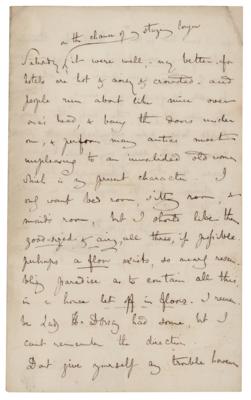 on the chance of my staying longer
Saturday, it were well, my better, for
hotels are hot & noisy & crowded. and
people run about like mice over
one's head, & bang the doors under
one, & perform many antics most
unpleasing to an invalided old woman
which is my present character. I
only want bed room, sitting room, &
maid's room, but I shd like the
good-sized & airy, all three, if possible
perhaps a floor exists, so nearly resem-
bling paradise as to contain all this,
in a house let off in floors. I remem-
ber Lady had some, but I
cant remember the direction.
Dont give yourself any trouble however